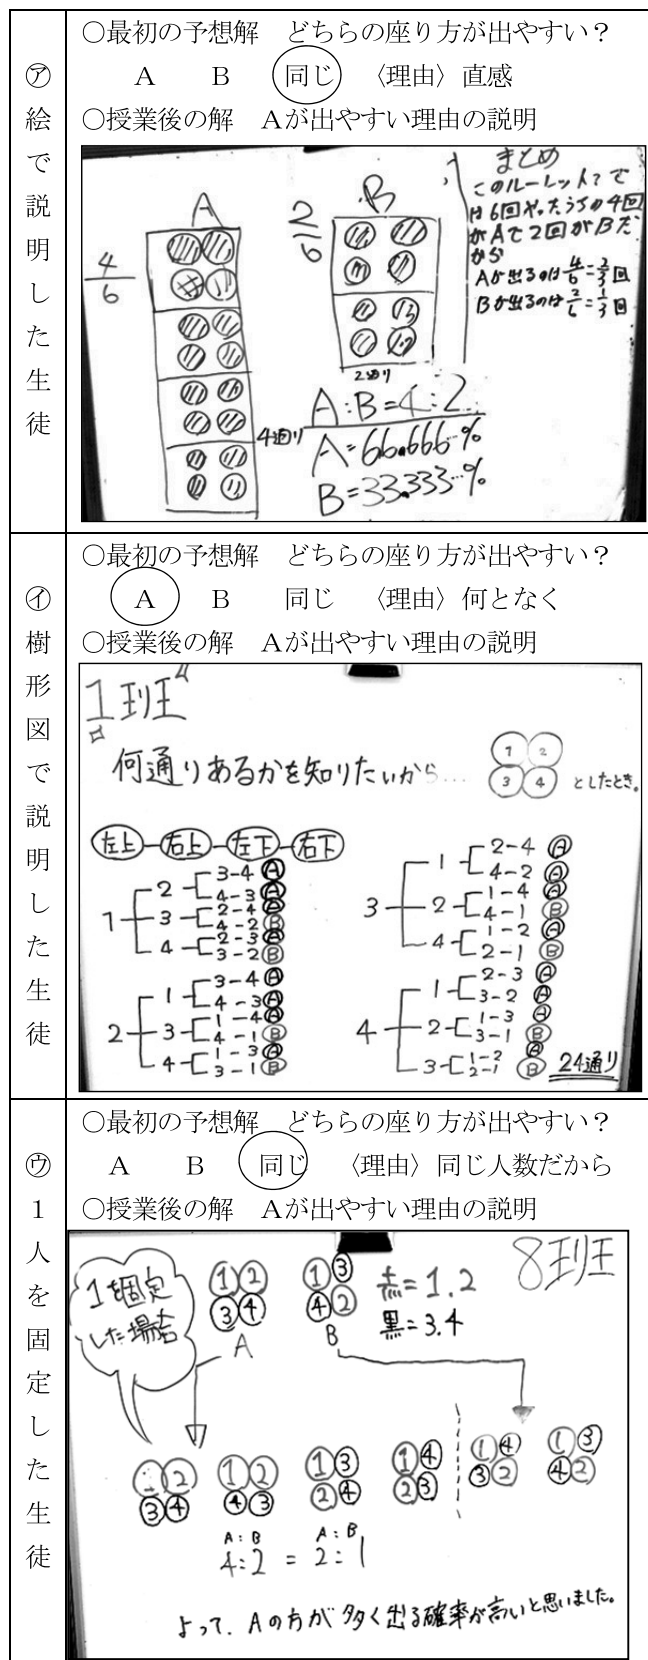 ㋐絵で説明した生徒
○最初の予想解　どちらの座り方が出やすい？
A　B　同じ　〈理由〉直感
○授業後の解　Aが出やすい理由の説明
A
4/6
4通り
2/6
B
2通り
A:B=4:2
A=66.666…%
B=33.333…%
まとめ
このルーレットで
は6回やったうちの4回
がAで2回がBだ
から
Aが出るのは4/6=2/3回
Bが出るのは2/6=1/3回
㋑樹形図で説明した生徒
○最初の予想解　どちらの座り方が出やすい？
A　B　同じ　〈理由〉何となく
○授業後の解　Aが出やすい理由の説明
1班
何通りあるかを知りたいから…
1 2
3 4
としたとき。
左上-右上-左下-右下
1
2 3-4 A
4-3 A
3 2-4 A
4-2 B
4 2-3 A
3-2 B
2
1 3-4 A
4-3 A
3 1-4 A
4-1 B
4 1-3 A
3-1 B
3
1 2-4 A
4-2 A
2 1-4 A
4-1 B
4 1-2 A
2-1 B
4
1 2-3 A
3-2 A
2 1-3 A
3-1 B
3 1-2 A
2-1 B
24通り
㋒1人を固定した生徒
○最初の予想解　どちらの座り方が出やすい？
A　B　同じ　〈理由〉同じ人数だから
○授業後の解　Aが出やすい理由の説明
8班
1を固定
した場合
1 2
3 4
A
1 3
4 2
B
赤=1.2
黒=3.4
1 2　1 2　1 3　1 4　1 4　1 3
3 4　4 3　2 4　2 3　3 2　4 2
A:B　A:B
4:2 = 2:1
よって、Aの方が多く出る確率が高いと思いました。